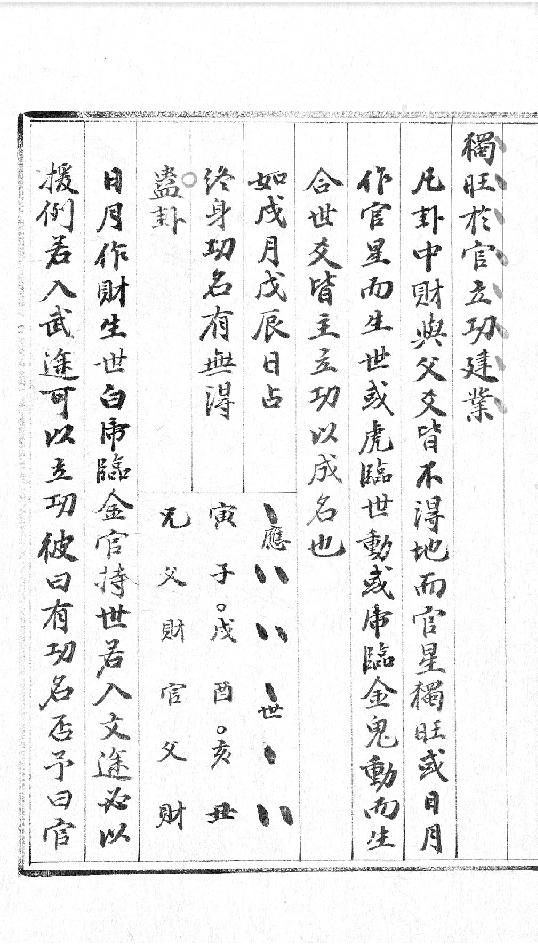 獨旺於官立功建業
凡卦中財與父爻皆不得地而官星獨旺或日月
作官星而生世或虎臨世動或虎臨金鬼動而生
合世爻皆主立功以成名也
如戌月戊辰日占
終身功名有無得
蠱卦
應 世
寅 子。戌 酉。亥 丑
兄 父 財 官 父 財
日月作財生世白虎臨金官持世若入文途必以
援例若入武途可以立功彼曰有功名否予曰官